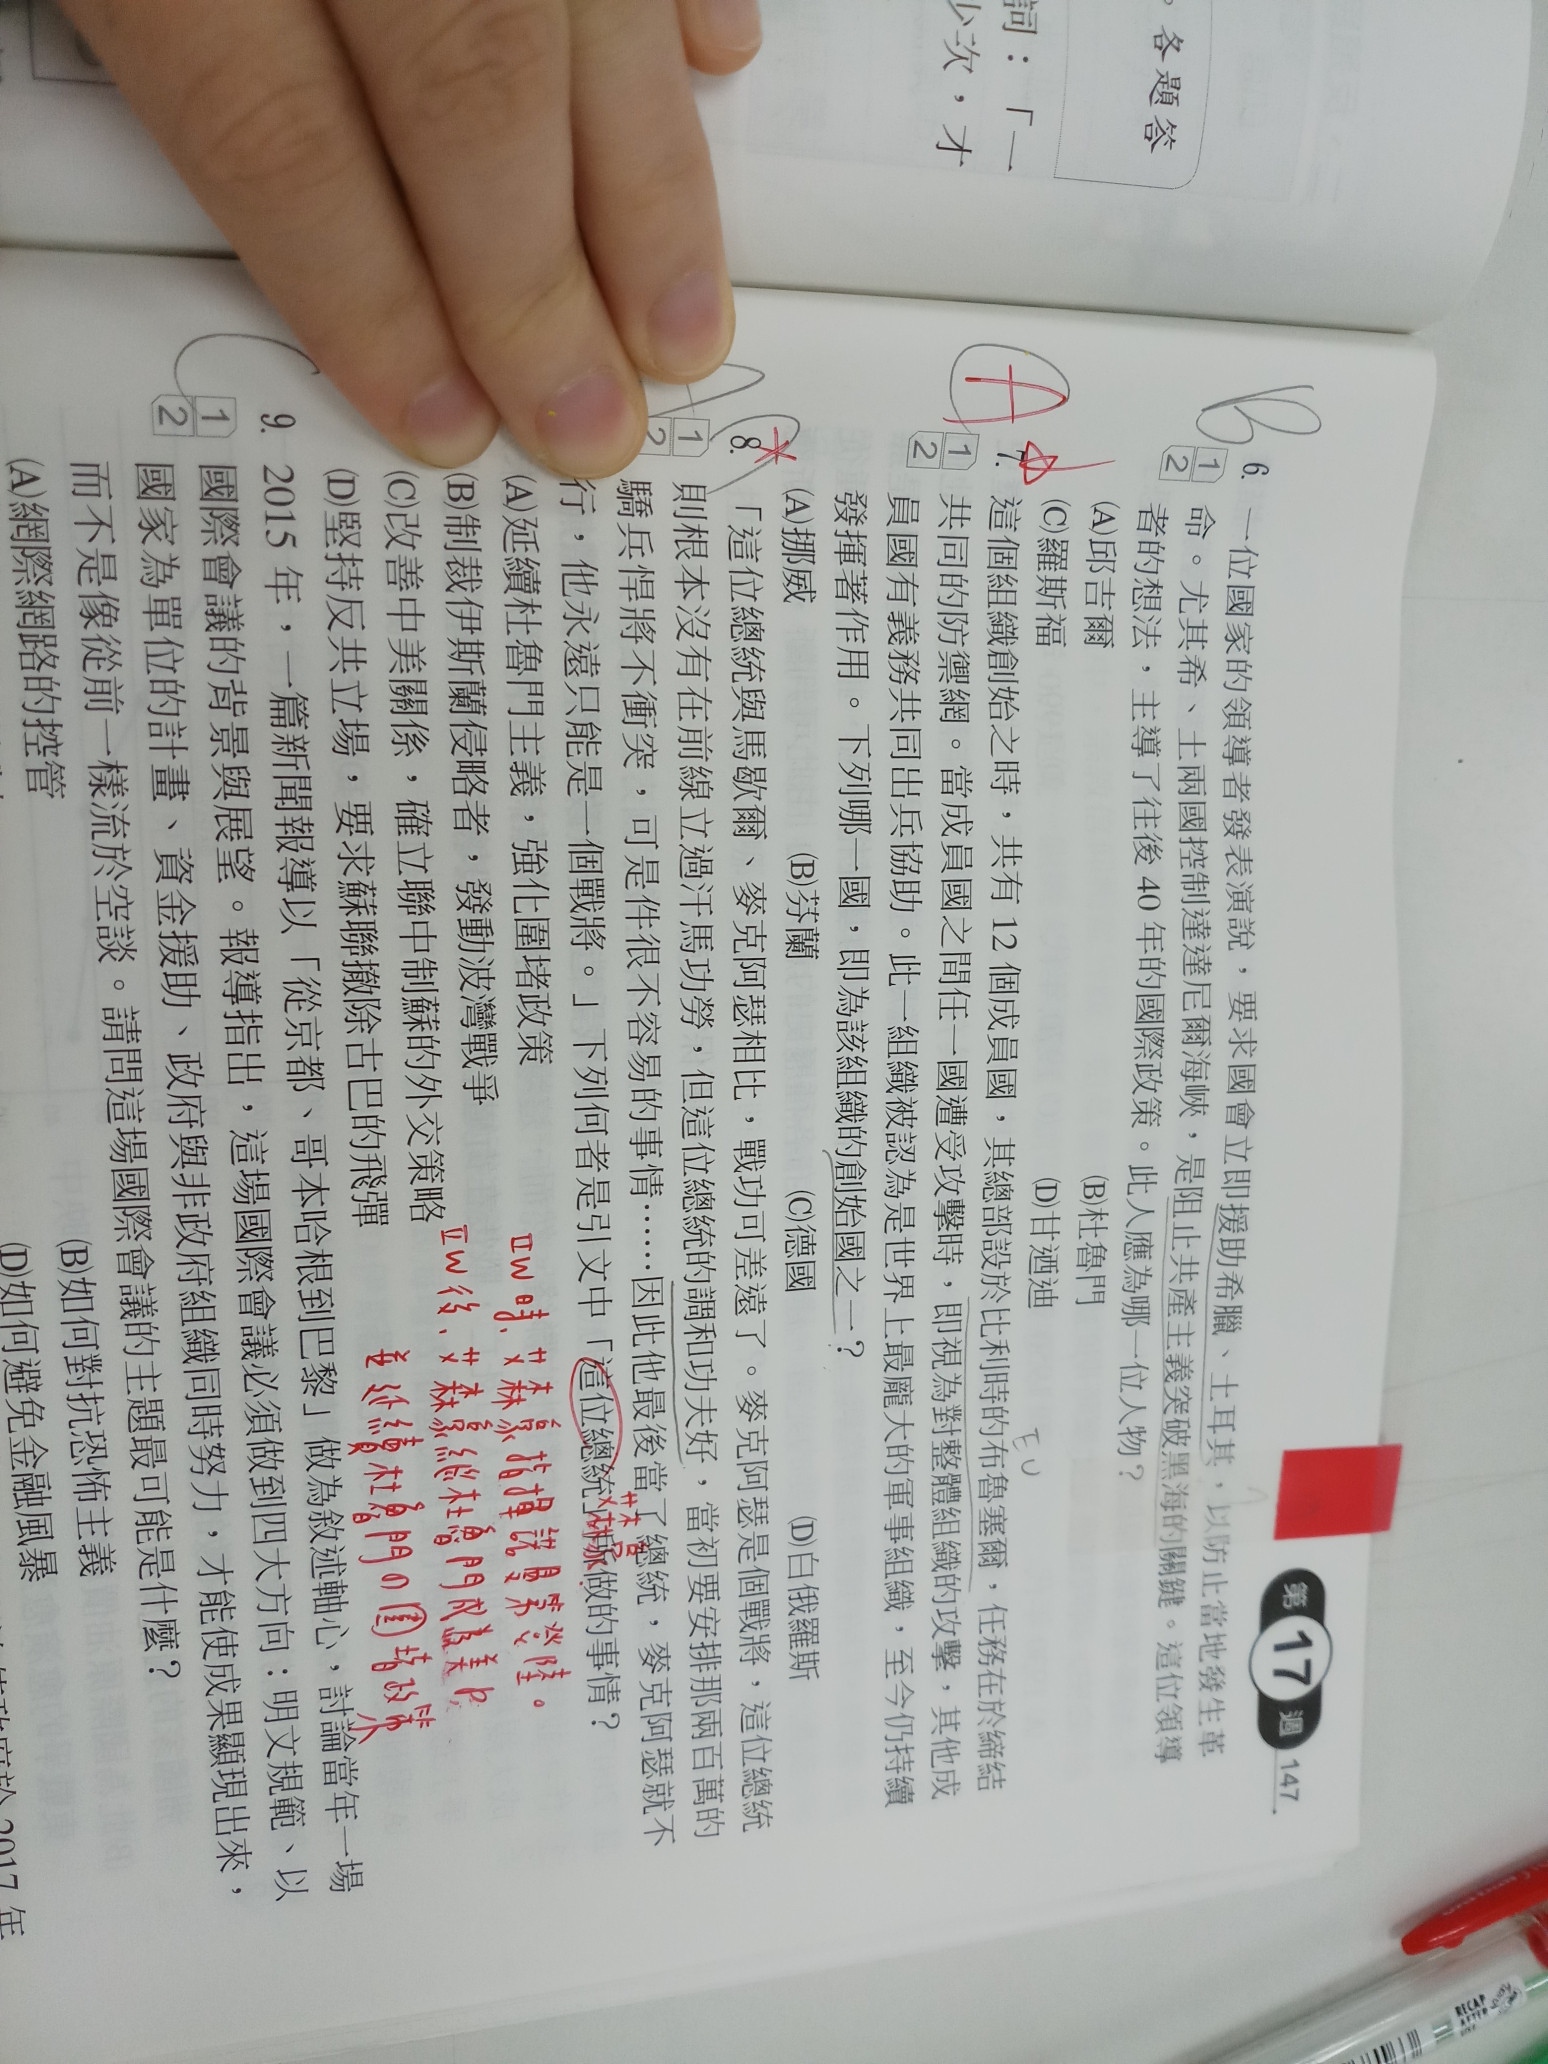 。各題答
詞：「一
少次，才
第17週 147
B
6. 一位國家的領導者發表演說，要求國會立即援助希臘、土耳其，以防止當地發生革
1 命。尤其希、土兩國控制達達尼爾海峽，是阻止共產主義突破黑海的關鍵。這位領導
2 者的想法，主導了往後 40 年的國際政策。此人應為哪一位人物？
(A)邱吉爾 (B)杜魯門
(C)羅斯福 (D)甘迺迪
EU
A
7. 這個組織創始之時，共有 12 個成員國，其總部設於比利時的布魯塞爾，任務在於締結
1 共同的防禦網。當成員國之間任一國遭受攻擊時，即視為對整體組織的攻擊，其他成
2 員國有義務共同出兵協助。此一組織被認為是世界上最龐大的軍事組織，至今仍持續
發揮著作用。下列哪一國，即為該組織的創始國之一？
(A)挪威 (B)芬蘭 (C)德國 (D)白俄羅斯
8. 「這位總統與馬歇爾、麥克阿瑟相比，戰功可差遠了。麥克阿瑟是個戰將，這位總統
1 則根本沒有在前線立過汗馬功勞，但這位總統的調和功夫好，當初要安排那兩百萬的
2 驕兵悍將不衝突，可是件很不容易的事情……因此他最後當了總統，麥克阿瑟就不
行，他永遠只能是一個戰將。」下列何者是引文中「這位總統」所做的事情？
(A)延續杜魯門主義，強化圍堵政策
(B)制裁伊斯蘭侵略者，發動波灣戰爭
(C)改善中美關係，確立聯中制蘇的外交策略
(D)堅持反共立場，要求蘇聯撤除古巴的飛彈
艾森豪
IIW時，艾森豪指揮諾曼第登陸。
IIW後，艾森豪繼杜魯門成為美
並延續杜魯門の圍堵政策
9. 2015 年，一篇新聞報導以「從京都、哥本哈根到巴黎」做為敘述軸心，討論當年一場
1 國際會議的背景與展望。報導指出，這場國際會議必須做到四大方向：明文規範、以
2 國家為單位的計畫、資金援助、政府與非政府組織同時努力，才能使成果顯現出來，
而不是像從前一樣流於空談。請問這場國際會議的主題最可能是什麼？
(A)網際網路的控管 (B)如何對抗恐怖主義
(D)如何避免金融風暴
2017 年
RECAP
AFTER
USE